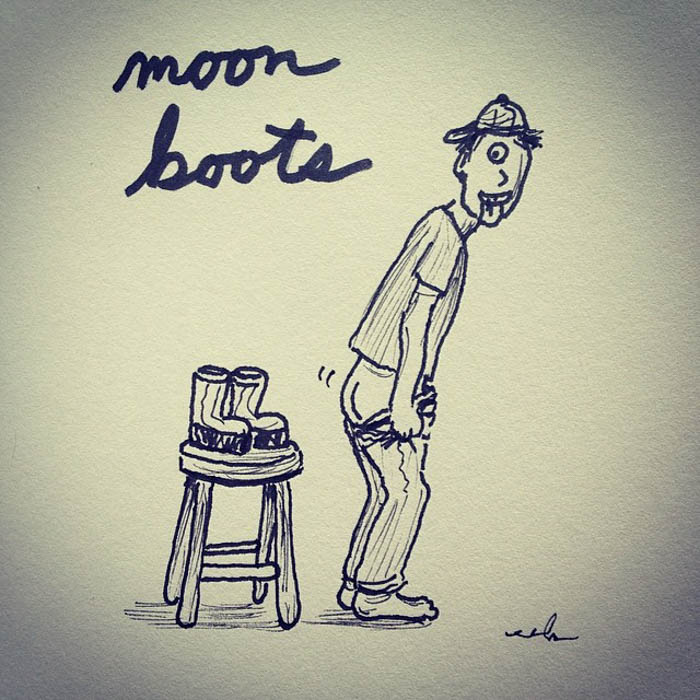 moon
boots